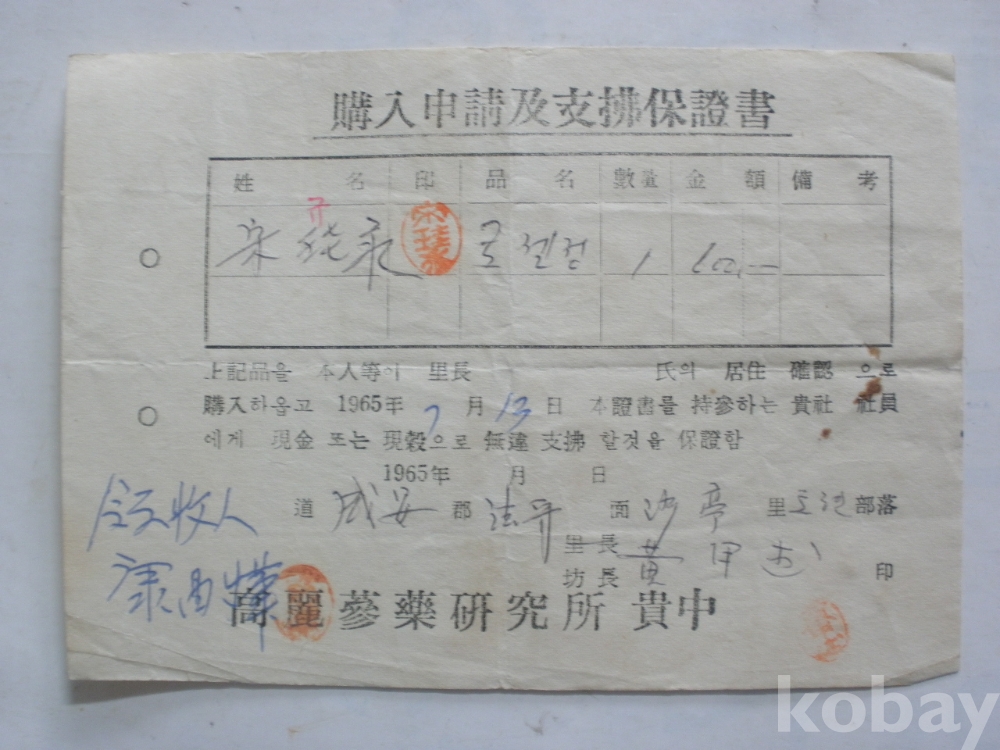 購入申請及支拂保證書
姓名 印 品名 數量 金額 備考
宋 로젤정 1 600,—
上記品을 本人等이 里長 氏의 居住 確認 으로
購入하옵고 1965年 7月 13日 本證書를 持參하는 貴社 社員
에게 現金 또는 現穀으로 無違 支拂 할것을 保證함
1965年 月 日
道 咸安 郡 法守 面 沙亭 里 部落
里長
坊長 黃甲 印
領收人
康昌
高麗蔘藥硏究所 貴中
kobay